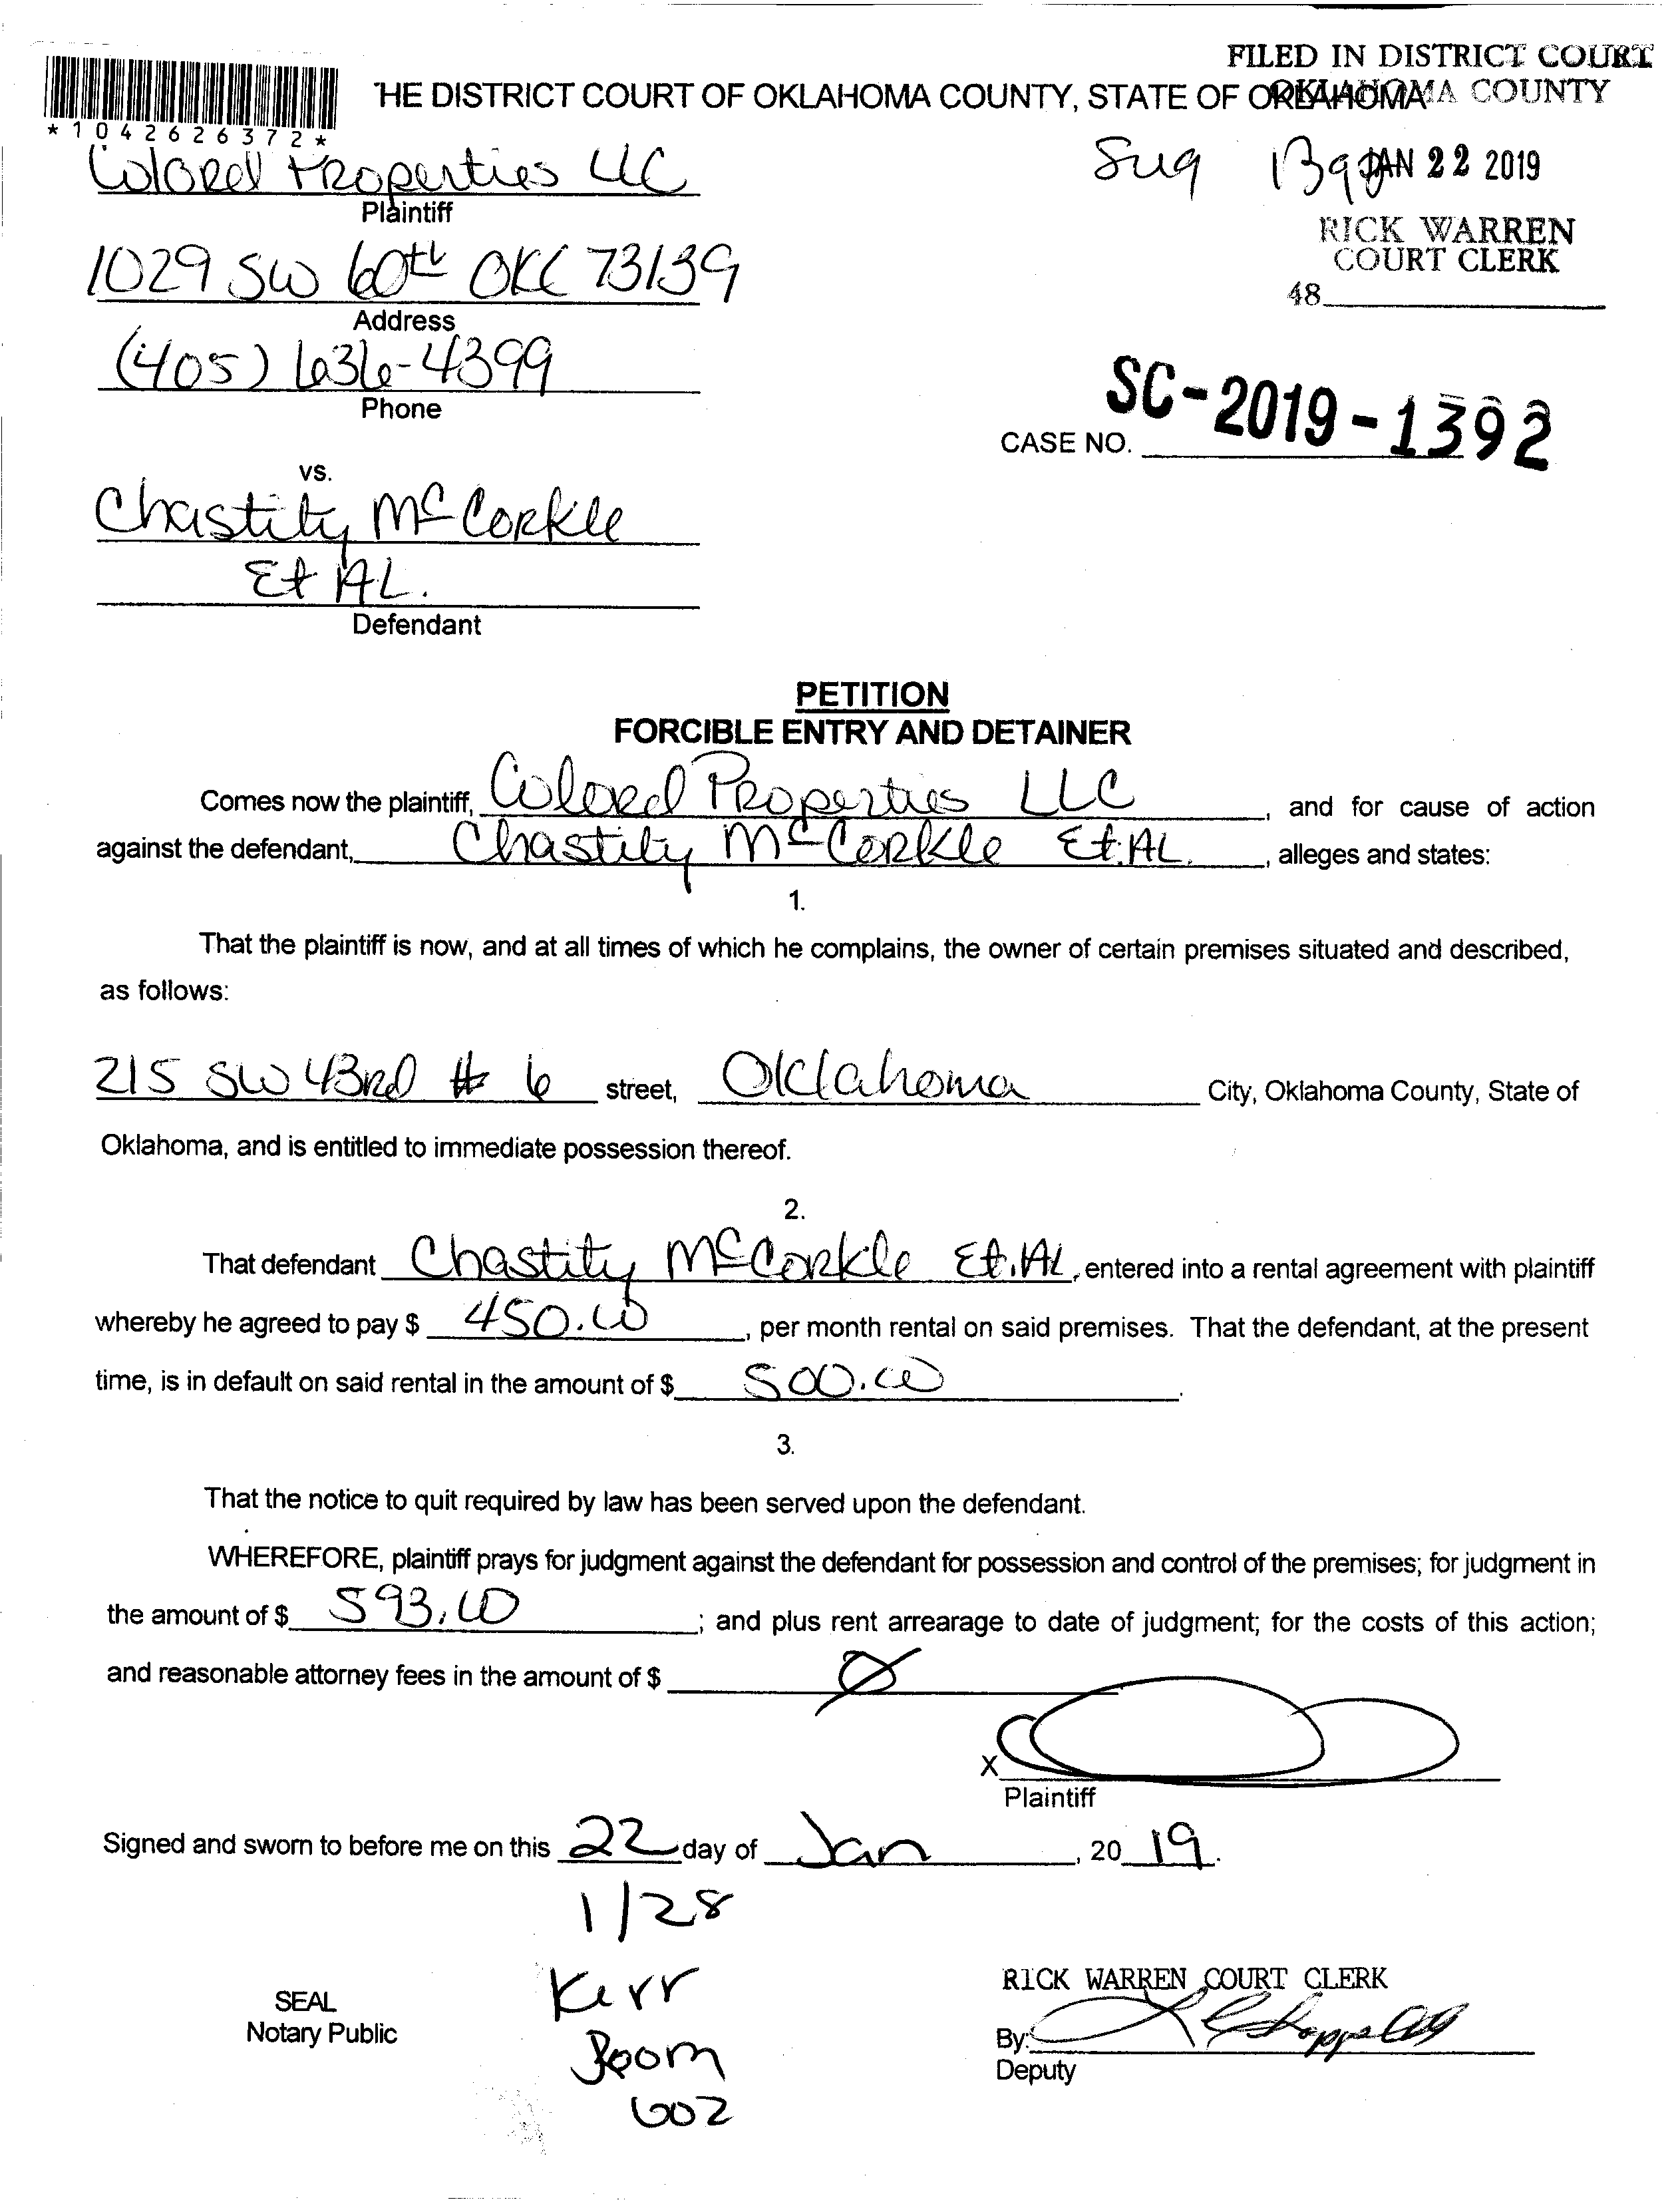 FILED IN DISTRICT COURT
OKLAHOMA COUNTY
THE DISTRICT COURT OF OKLAHOMA COUNTY, STATE OF OKLAHOMA
*1042626372*
Colored Properties LLC
Plaintiff
JAN 22 2019
RICK WARREN
COURT CLERK
48
1029 SW 60th OKC 73139
Address
(405) 636-4399
Phone
CASE NO. SC-2019-1392
vs.
Chastity McCorkle
Et AL.
Defendant
PETITION
FORCIBLE ENTRY AND DETAINER
Comes now the plaintiff, Colored Properties LLC, and for cause of action
against the defendant, Chastity McCorkle Et.AL., alleges and states:
1.
That the plaintiff is now, and at all times of which he complains, the owner of certain premises situated and described,
as follows:
215 SW 43rd # 6 street, Oklahoma City, Oklahoma County, State of
Oklahoma, and is entitled to immediate possession thereof.
2.
That defendant Chastity McCorkle Et.AL, entered into a rental agreement with plaintiff
whereby he agreed to pay $ 450.00, per month rental on said premises. That the defendant, at the present
time, is in default on said rental in the amount of $ 500.00.
3.
That the notice to quit required by law has been served upon the defendant.
WHEREFORE, plaintiff prays for judgment against the defendant for possession and control of the premises; for judgment in
the amount of $ 593.00; and plus rent arrearage to date of judgment; for the costs of this action;
and reasonable attorney fees in the amount of $ Ø
X
Plaintiff
Signed and sworn to before me on this 22 day of Jan, 2019.
1/28
Kerr
Room
602
SEAL
Notary Public
RICK WARREN COURT CLERK
By:
Deputy